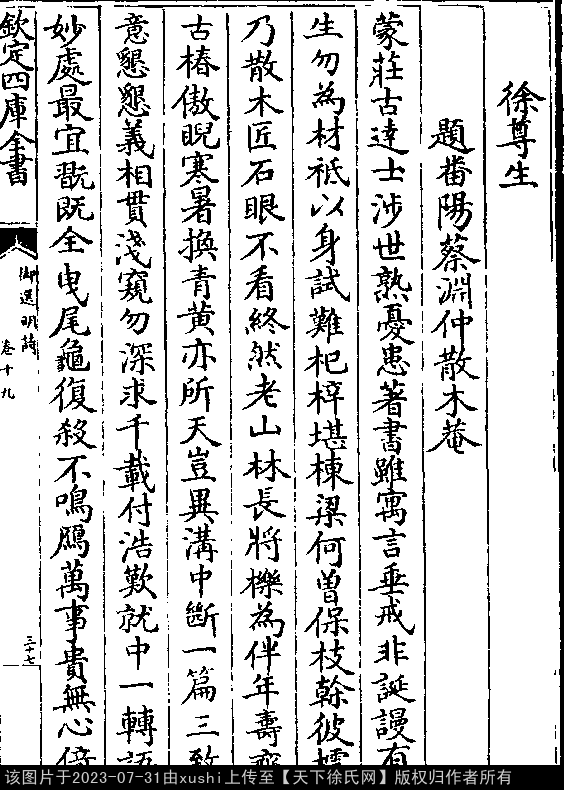 徐尊生
題番陽蔡淵仲散木菴
蒙莊古達士涉世熟憂患著書雖寓言垂戒非誕謾有
生勿為材祗以身試難杞梓堪棟梁何曾保枝榦彼
乃散木匠石眼不看終然老山林長將櫟為伴年壽
古椿傲睨寒暑換青黄亦所天豈異溝中斷一篇三致
意懇懇義相貫淺窺勿深求千載付浩歎就中一轉語
妙處最宜翫既全曳尾龜復殺不鳴鴈萬事貴無心
欽定四庫全書
御選明詩
卷十九
三十七
该图片于2023-07-31由xushi上传至【天下徐氏网】版权归作者所有